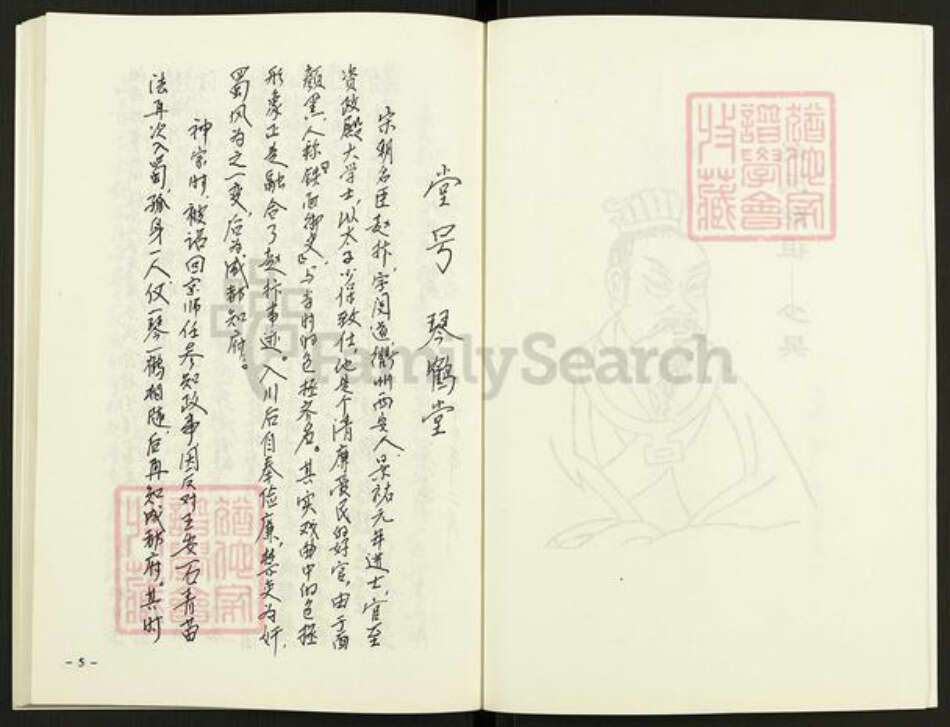 堂号 琴鹤堂
宋朝名臣赵抃,字阅道,衢州西安人,景祐元年进士,官至
资政殿大学士,以太子少保致仕,他是个清廉爱民的好官,由于面
颜黑,人称“铁面御史”,与当时的包拯齐名。其实戏曲中的包拯
形象正是融合了赵抃事迹。入川后自奉俭廉,禁吏为奸,
蜀风为之一变,后为成都知府。
神宗时,被诏回京师任参知政事,因反对王安石青苗
法再次入蜀,孤身一人,仅一琴一鹤相随,后再知成都府。其时
- 5 -
譜學會
收藏
FamilySearch